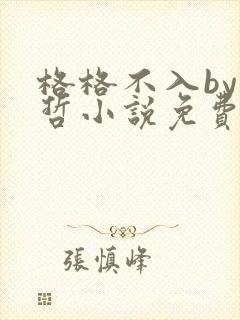 格格不入by
哲小說免費
張慎峰